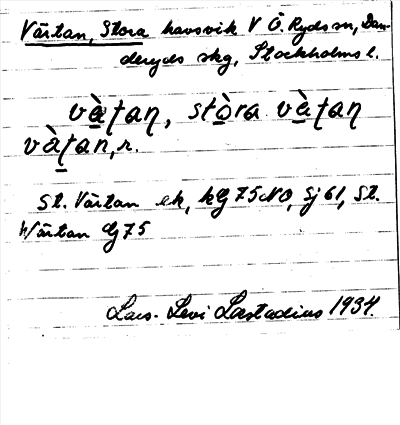 Värtan, Stora havsvik V Ö. Ryds sn, Dan-
deryds skg, Stockholms l.
vàʈan, stòra vàʈan
vàʈan, r.
St. Värtan ek, kG 75 NO, Sj 61, St.
Wärtan Gj 75
Lars-Levi Læstadius 1934.